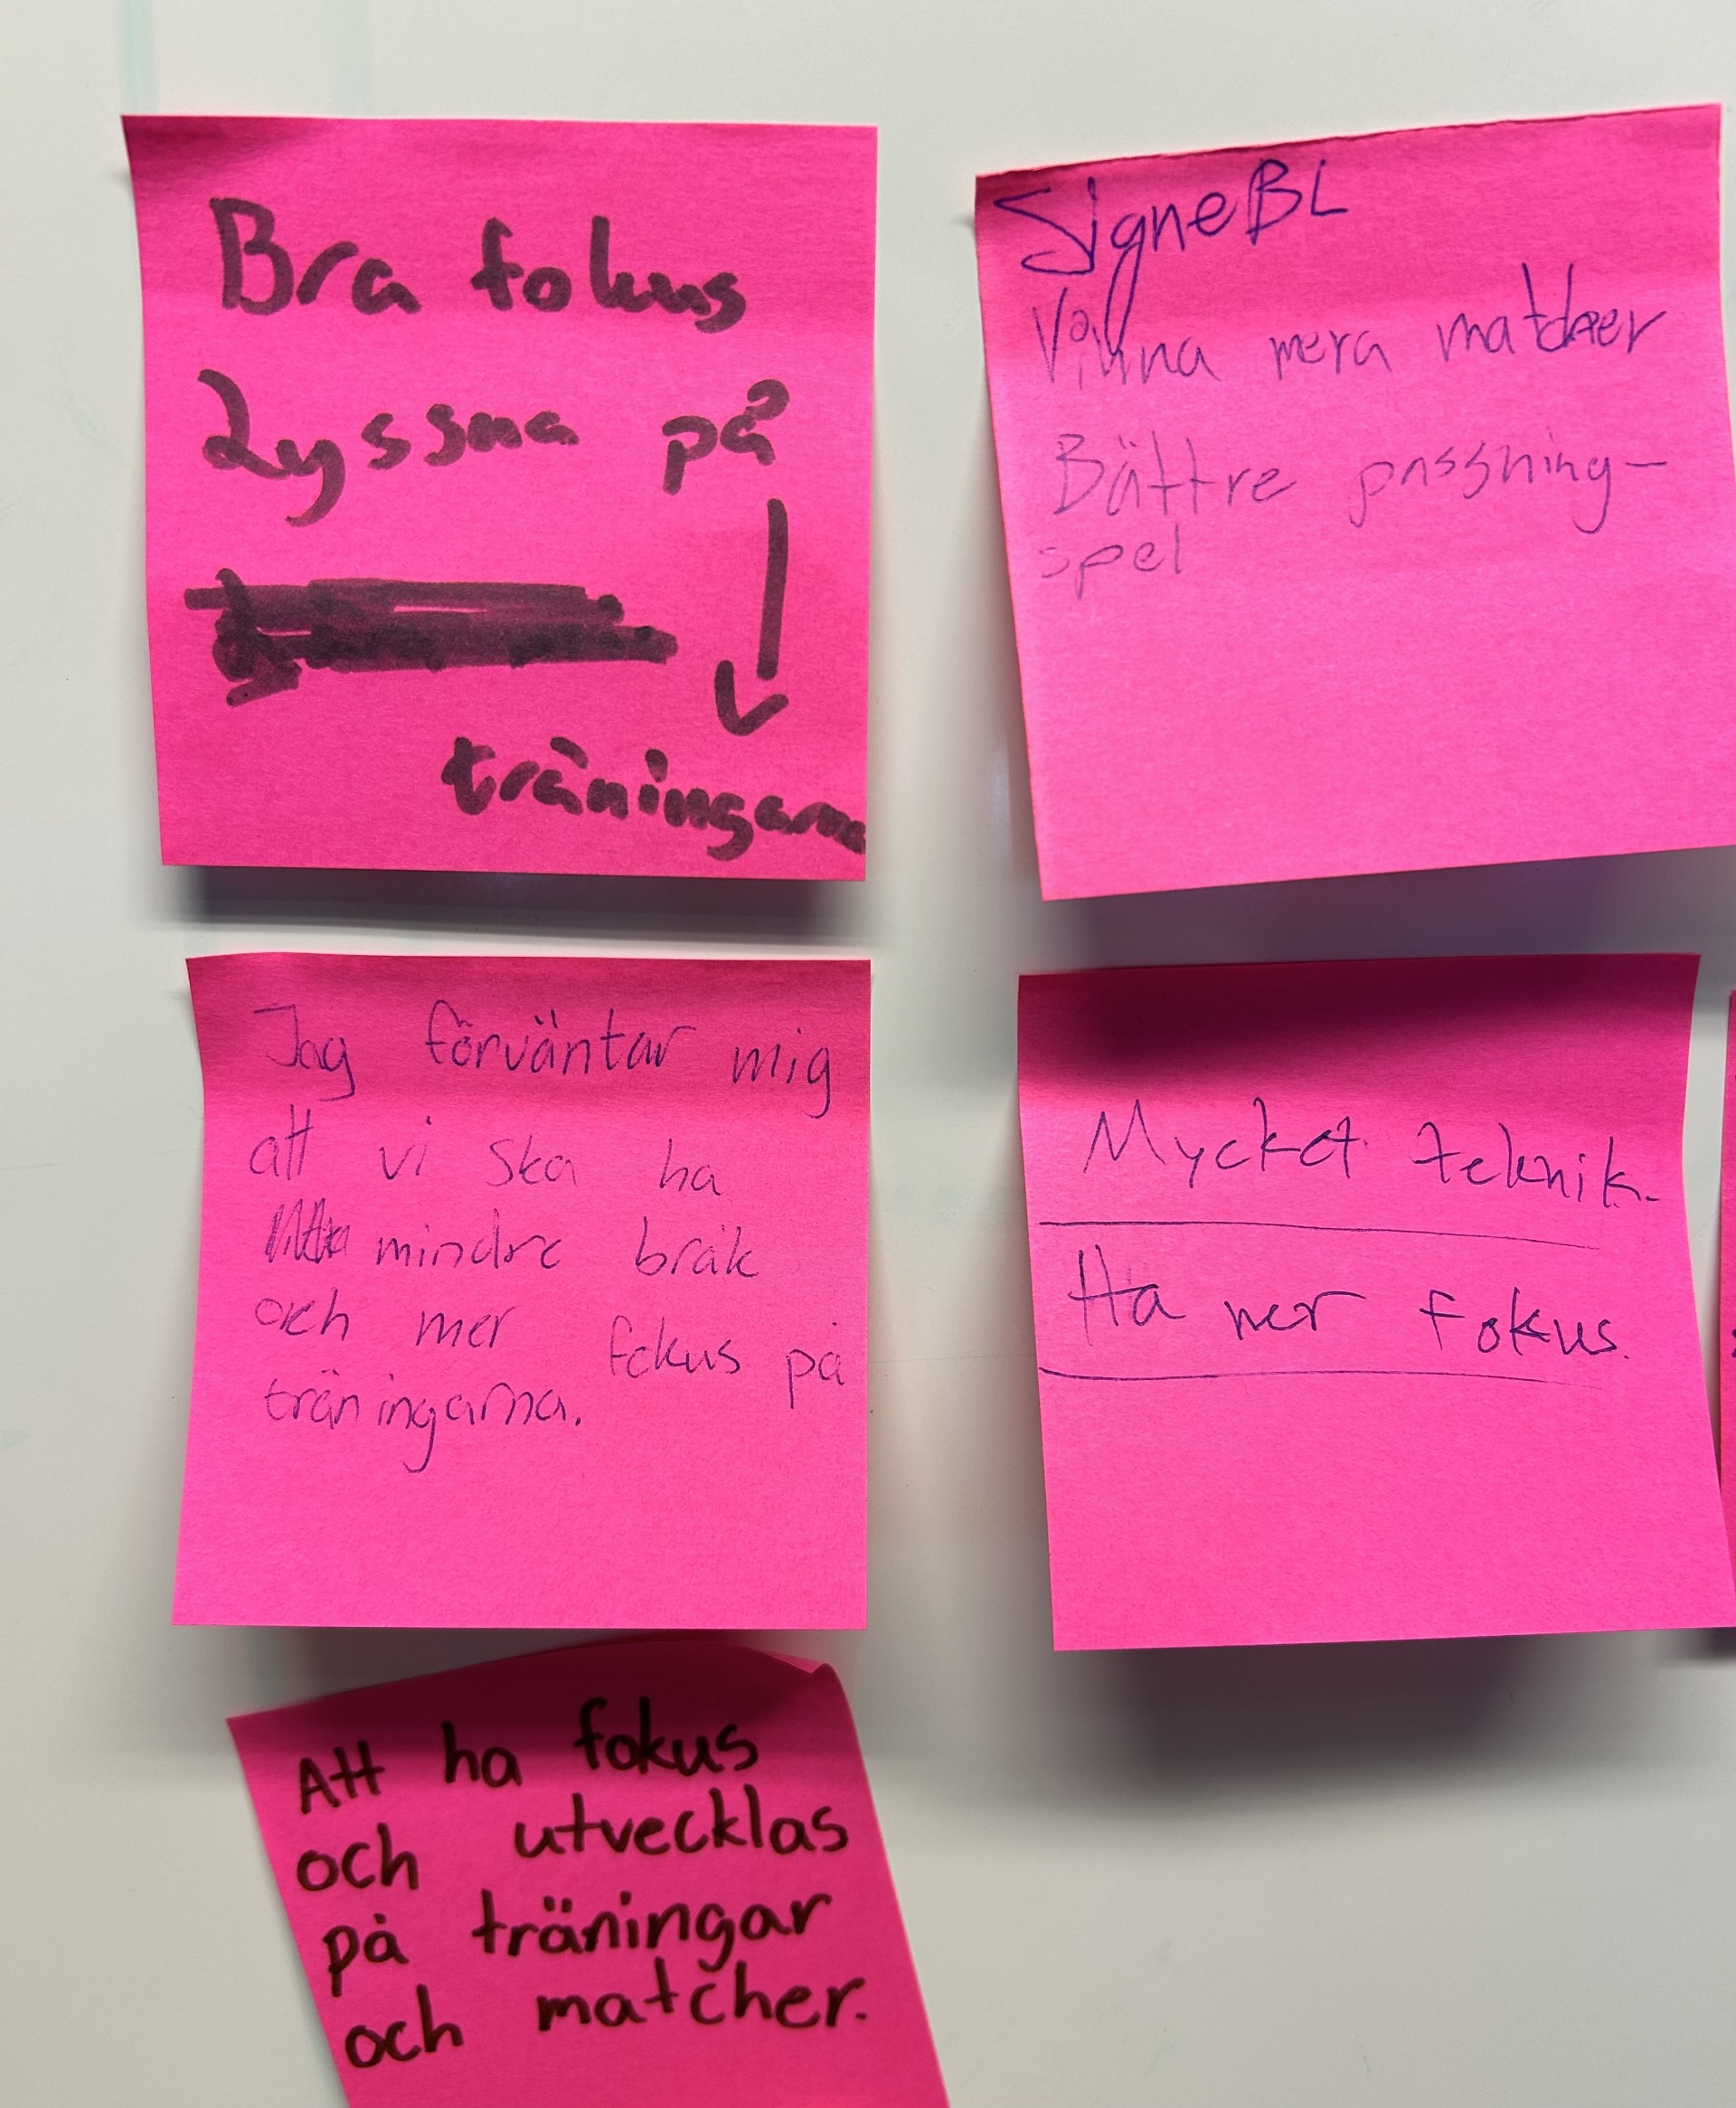 Bra fokus
Lyssna på
träningarna
SigneBL
Vinna mera matcher
Bättre passning-
spel
Jag förväntar mig
att vi ska ha
mindre bråk
och mer fokus på
träningarna.
Mycket teknik.
Ha mer fokus.
Att ha fokus
och utvecklas
på träningar
och matcher.